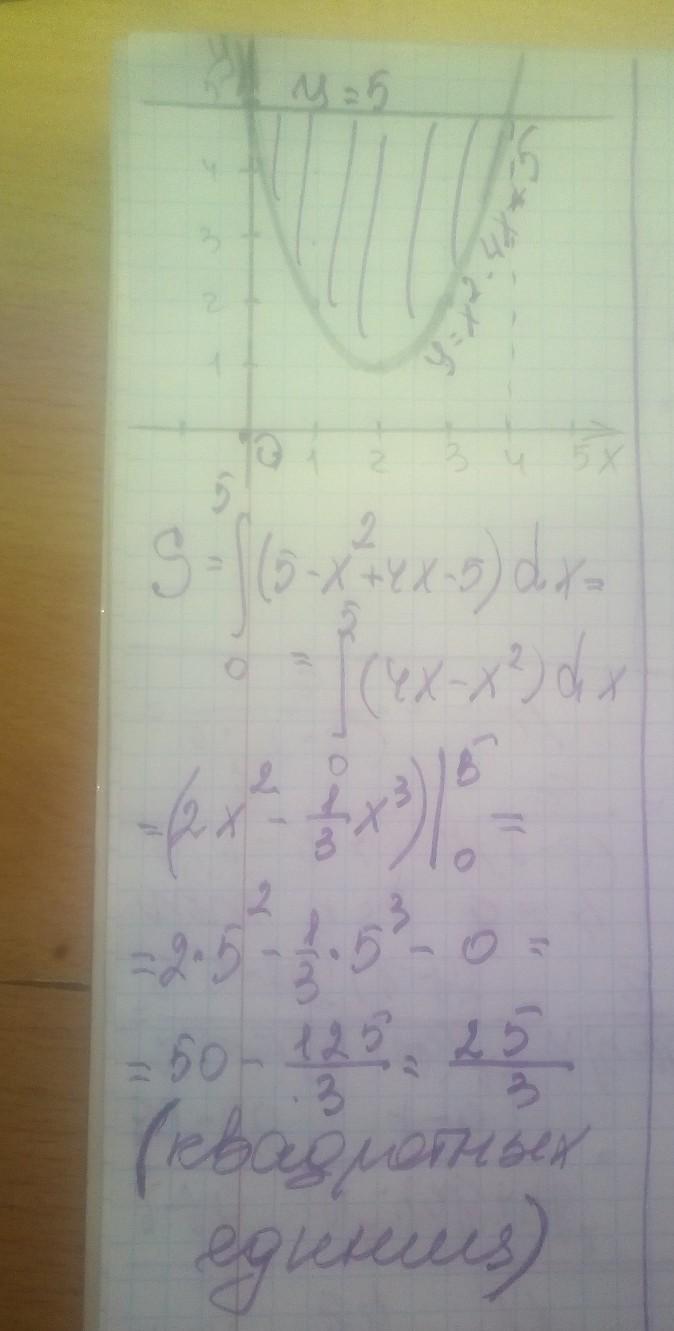 y
5
y = 5
4
3
2
1
y = x² - 4x + 5
0 1 2 3 4 5 x
S = ∫₀⁵ (5 - x² + 4x - 5) dx =
= ∫₀⁵ (4x - x²) dx
= (2x² - 1/3 x³) |₀⁵ =
= 2·5² - 1/3 · 5³ - 0 =
= 50 - 125/3 = 25/3
(квадротных
единиц)